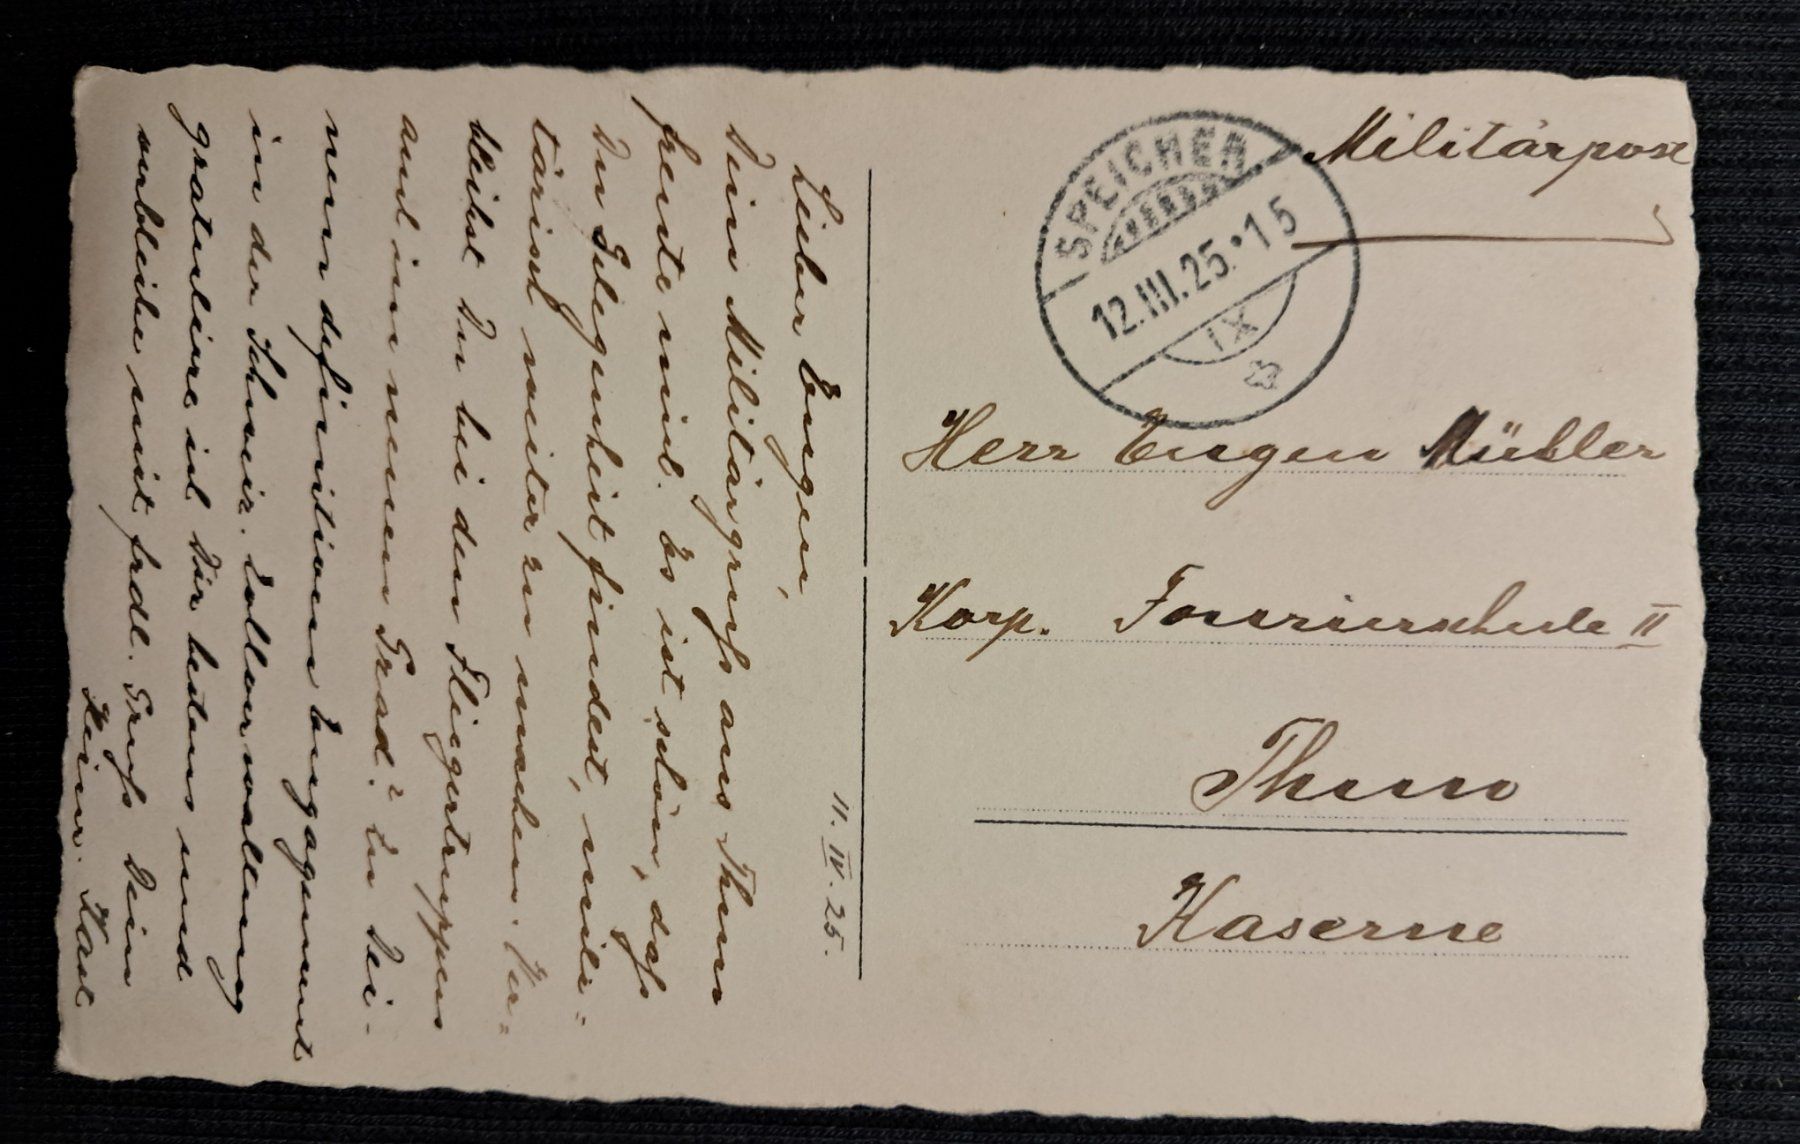 Militärpost
SPEICHER
12.III.25.•15
IX
Herr Eugen Müller
Korp. Fourierschule II
Thun
Kaserne
11. IV. 25.
Lieber Eugen,
Dein Militärgruss aus Thun
freute mich. Es ist schön, dass
Du Gelegenheit findest, mili-
tärisch weiter zu machen. Ver-
bleibst Du bei den Fliegertruppen
auch im neuen Grad? Zu Dei-
nem definitivem Engagement
in der Schweiz. Zollverwaltung
gratuliere ich Dir bestens und
verbleibe mit frdl. Gruss Dein
Heinr.